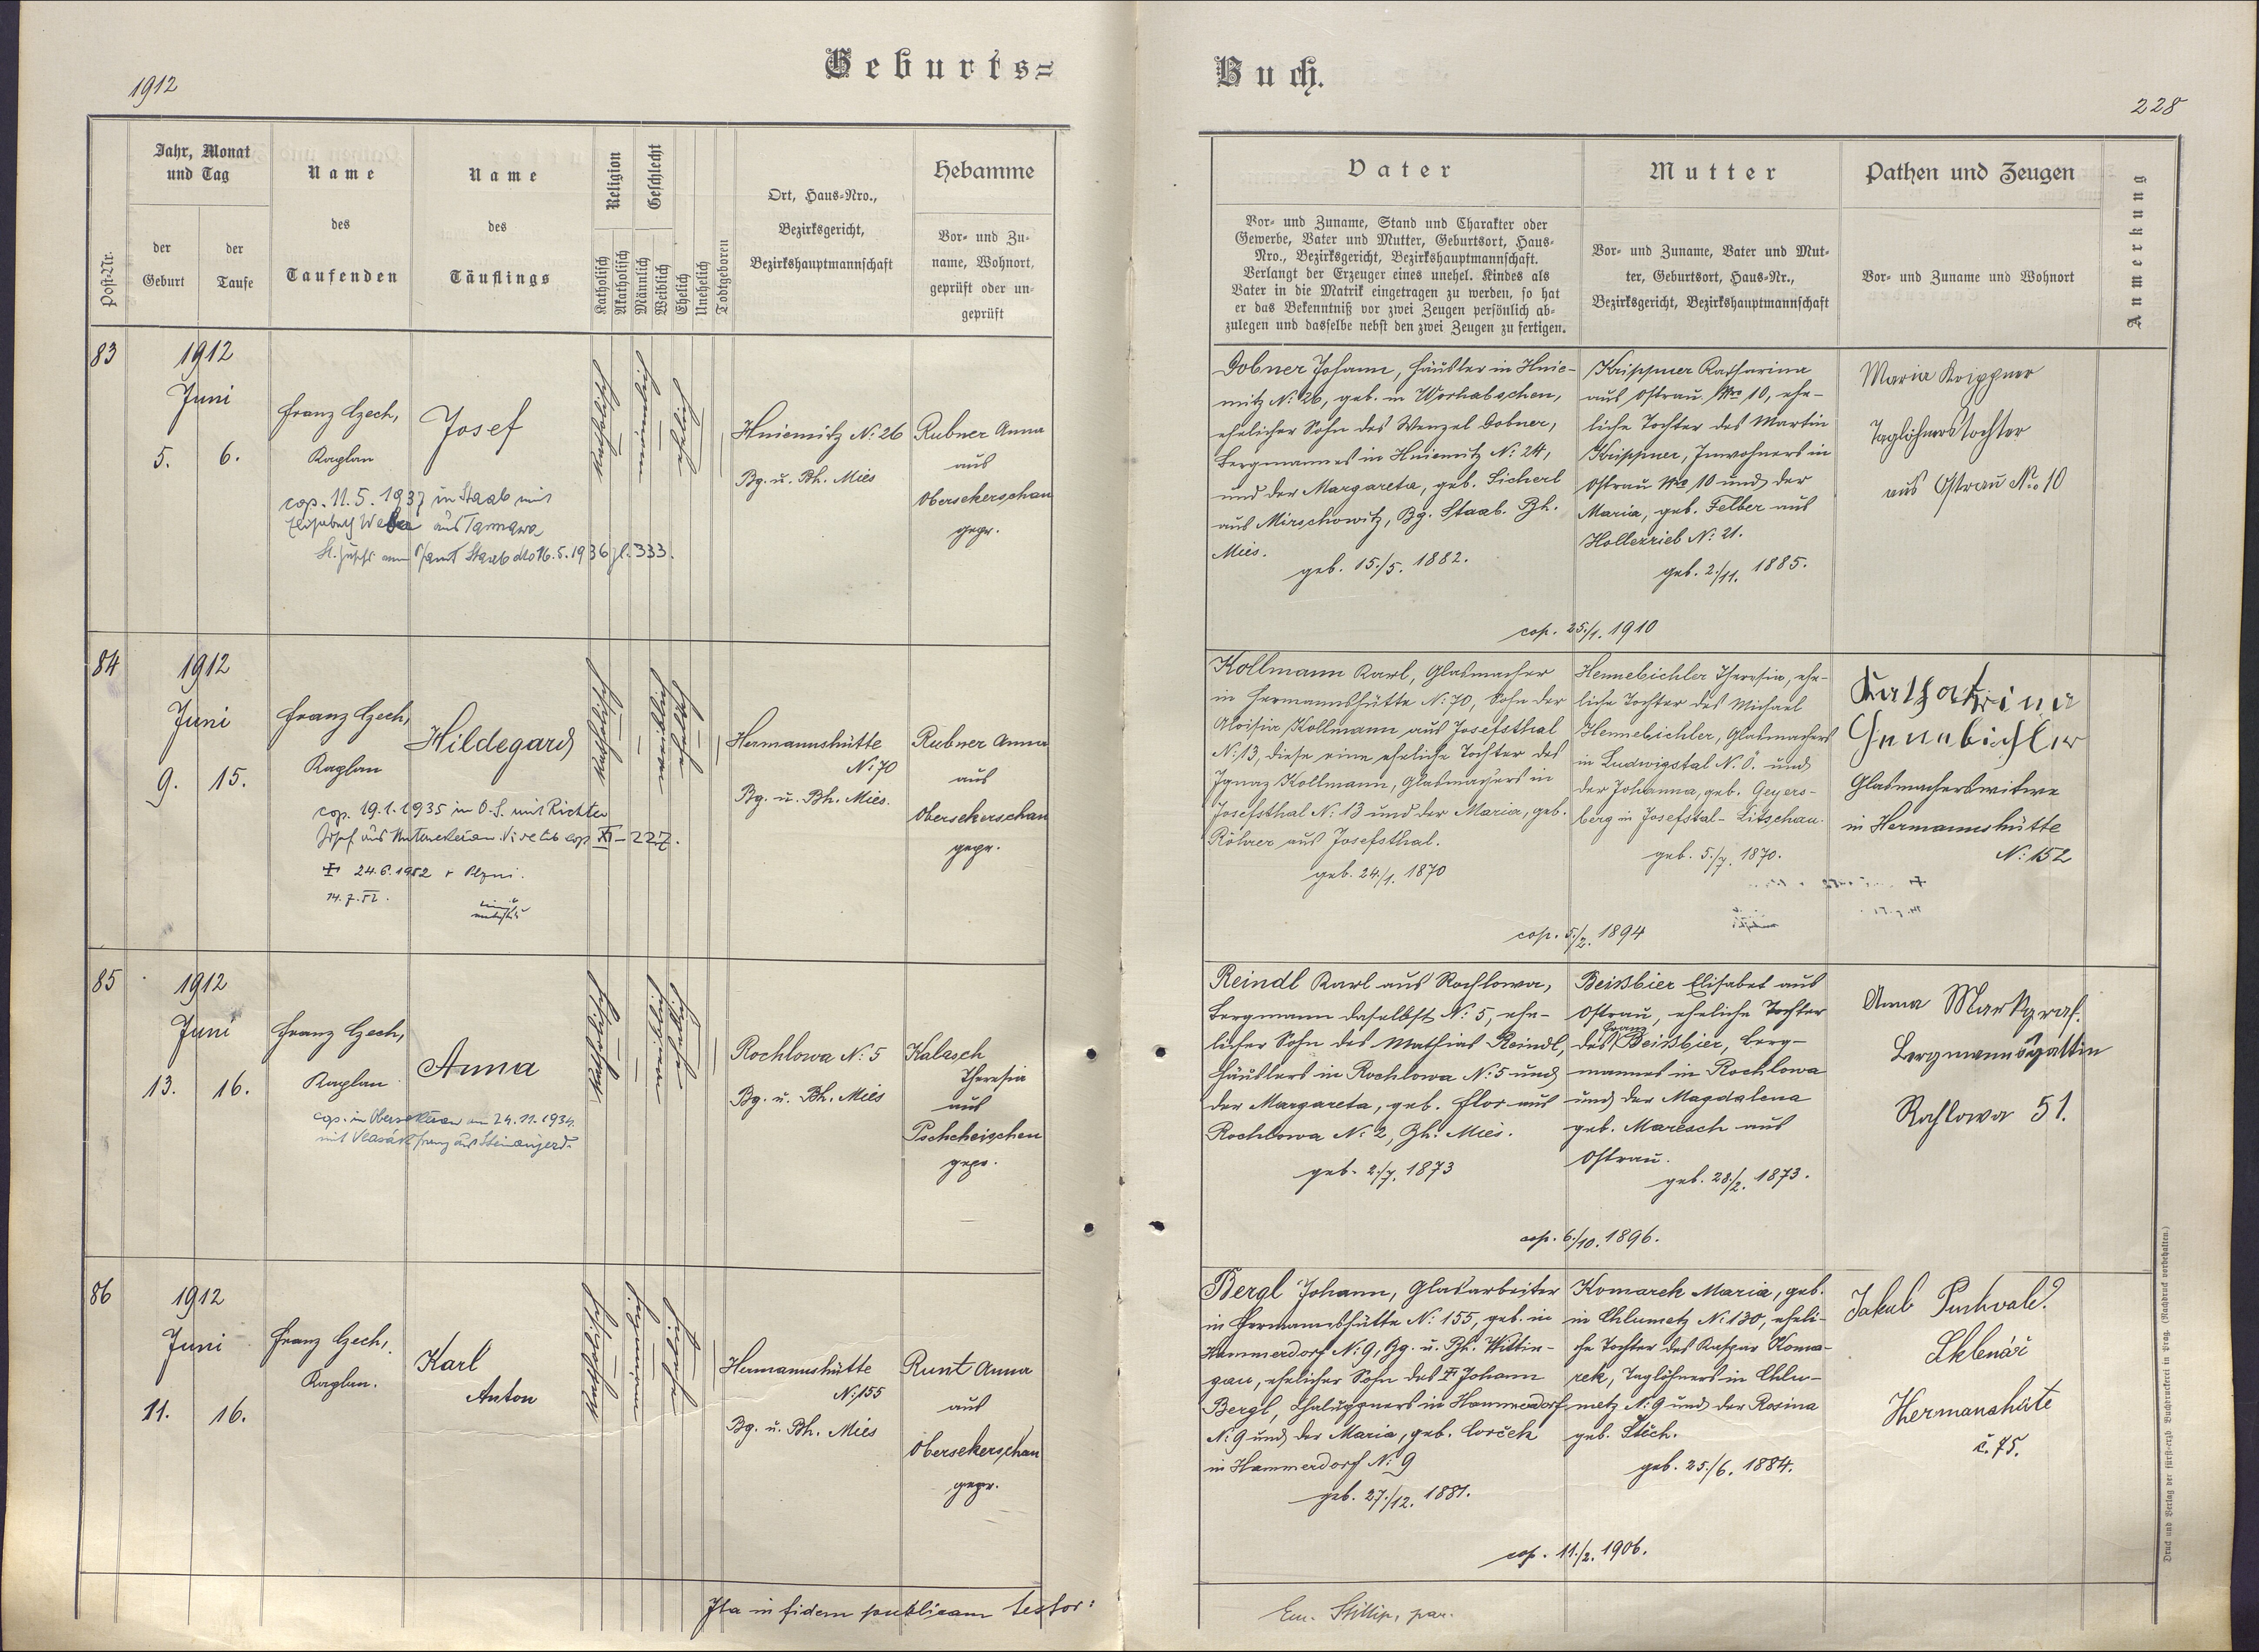 1912
Geburts=
Buch.
228
Post-Nr.
Jahr, Monat
und Tag
der
Geburt
der
Taufe
Name
des
Taufenden
Name
des
Täuflings
Religion
Katholisch
Akatholisch
Geschlecht
Männlich
Weiblich
Ehelich
Unehelich
Todtgeboren
Ort, Haus-Nro.,
Bezirksgericht,
Bezirkshauptmannschaft
Hebamme
Vor- und Zu-
name, Wohnort,
geprüft oder un-
geprüft
Vater
Vor- und Zuname, Stand und Charakter oder
Gewerbe, Vater und Mutter, Geburtsort, Haus-
Nro., Bezirksgericht, Bezirkshauptmannschaft.
Verlangt der Erzeuger eines unehel. Kindes als
Vater in die Matrik eingetragen zu werden, so hat
er das Bekenntniß vor zwei Zeugen persönlich ab-
zulegen und dasselbe nebst den zwei Zeugen zu fertigen.
Mutter
Vor- und Zuname, Vater und Mut-
ter, Geburtsort, Haus-Nr.,
Bezirksgericht, Bezirkshauptmannschaft
Pathen und Zeugen
Vor- und Zuname und Wohnort
Anmerkung
83
1912
Juni
5. 6.
Franz Czech,
Kaplan
Josef
katholisch
männlich
ehelich
cop. 11.5.1937 in Staab mit
Elisabeth aus
Staab dto 16.5.1936 Zl. 333.
Hniemitz N: 26
Bg. u. Bh. Mies
Rubner Anna
aus
Obersekerschan
gepr.
Dobner Johann, Häusler in Hnie-
mitz N: 26, geb. in Worhabschen,
ehelicher Sohn des Wenzel Dobner,
Bergmannes in Hniemitz N: 24,
und der Margareta, geb. Sicherl
aus Mirschowitz, Bg. Staab. Bh.
Mies.
geb. 15./5. 1882.
Krippner Katharina
aus Ostrau Nro 10, ehe-
liche Tochter des Martin
Krippner, Inwohners in
Ostrau Nro 10 und der
Maria, geb. Felber aus
Hollezrieb N: 21.
geb. 2./11. 1885.
cop. 25./1. 1910
Maria Krippner
Taglöhnerstochter
aus Ostrau No 10
84
1912
Juni
9. 15.
Franz Czech,
Kaplan
Hildegard
katholisch
weiblich
ehelich
cop. 19.1.1935 in O.S. mit Richter
Josef aus cop XI-227.
24.6.1952 v Plzni.
14.7.52.
Hermannshütte
N: 70
Bg. u. Bh. Mies.
Rubner Anna
aus
Obersekerschan
gepr.
Kollmann Karl, Glasmacher
in Hermannshütte N: 70, Sohn der
Aloisia Kollmann aus Josefsthal
N: 13, diese eine eheliche Tochter des
Ignaz Kollmann, Glasmachers in
Josefsthal N: 13 und der Maria, geb.
Röhrer aus Josefsthal.
geb. 24./1. 1870
Hennebichler Theresia, ehe-
liche Tochter des Michael
Hennebichler, Glasmachers
in Ludwigstal N. Ö. und
der Johanna, geb. Geyers-
berg in Josefstal-Litschau.
geb. 5./7. 1870.
cop. 5./2. 1894
Katharina
Hennebichler
Glasmacherswitwe
in Hermannshütte
N: 152
85
1912
Juni
13. 16.
Franz Czech,
Kaplan
Anna
katholisch
weiblich
ehelich
cop. in Obersekeran am 24.11.1934
mit Vlasák Franz aus
Rochlowa N: 5
Bg. u. Bh. Mies
Kalasch
Theresia
aus
Pscheheischen
gepr.
Reindl Karl aus Rochlowa,
Bergmann daselbst N: 5, ehe-
licher Sohn des Mathias Reindl,
Häuslers in Rochlowa N: 5 und
der Margareta, geb. Flor aus
Rochlowa N: 2, Bh. Mies.
geb. 2./7. 1873
Beißbier Elisabet aus
Ostrau, eheliche Tochter
des Franz Beißbier, Berg-
mannes in Rochlowa
und der Magdalena
geb. Maresch aus
Ostrau.
geb. 28./2. 1873.
cop. 6./10. 1896.
Anna Markgraf.
Bergmannsgattin
Rochlowa 51.
86
1912
Juni
11. 16.
Franz Czech,
Kaplan.
Karl
Anton
katholisch
männlich
ehelich
Hermannshütte
N: 155
Bg. u. Bh. Mies
Runt Anna
aus
Obersekerschan
gepr.
Bergl Johann, Glasarbeiter
in Hermannshütte N: 155, geb. in
Hammerdorf N: 9, Bg. u. Bh. Wittin-
gau, ehelicher Sohn des Johann
Bergl, Chaluppners in Hammerdorf
N: 9 und der Maria, geb.
in Hammerdorf N: 9
geb. 27./12. 1881.
Komarek Maria, geb.
in Chlumetz N: 130, eheli-
che Tochter des Kaspar Koma-
rek, Taglöhners in Chlu-
metz N: 9 und der Rosina
geb. Stěch.
geb. 25./6. 1884.
cop. 11./2. 1906.
Jakub
Sklenář
Hermanshüte
č. 75.
Ita in fidem publicam testor:
Druck und Verlag der fürst-erzb. Buchdruckerei in Prag. (Nachdruck vorbehalten.)